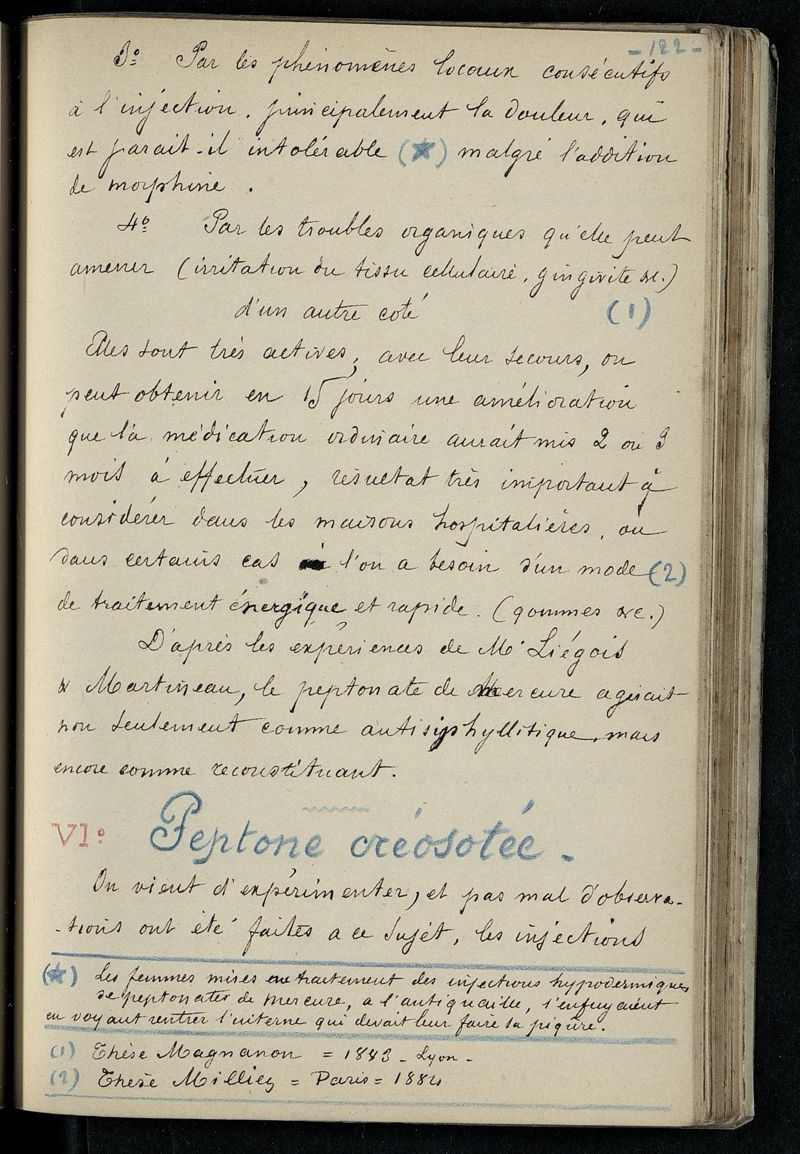 - 122 -
3º Par les phénomènes locaux consécutifs
à l'injection, principalement la douleur, qui
est parait-il intolérable (★) malgré l'addition
de morphine.
4º Par les troubles organiques qu'elle peut
amener (irritation du tissu cellulaire, gingivite &c.)
d'un autre coté (1)
Elles sont très actives, avec leur secours, on
peut obtenir en 15 jours une amélioration
que la médication ordinaire aurait mis 2 ou 3
mois à effectuer, résultat très important à
considérer dans les maisons hospitalières, où
dans certains cas l'on a besoin d'un mode (2)
de traitement énergique et rapide. (gommes &c.)
D'après les expériences de Mr Liégois
& Martineau, le peptonate de Mercure agirait
non seulement comme antisyphyllitique, mais
encore comme reconstituant.
VIº Peptone créosotée.
On vient d'expérimenter, et pas mal d'observa-
-tions ont été faites a ce sujet, les injections
(★) Les femmes mises en traitement des injections hypodermiques
de peptonates de mercure, a l'antiquaille, s'enfuyaient
en voyant rentrer l'interne qui devait leur faire la piqûre.
(1) Thèse Magnanon = 1883 - Lyon -
(2) Thèse Milliey = Paris = 1884